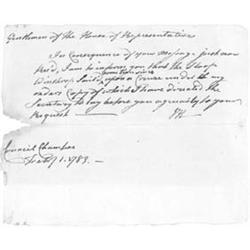 Gentlemen of the House of Representatives
In Consequence of your message just now
rec'd, I am to inform you that the Sloop
continues
Winthrop Sails upon a Cruise under my
orders Copy of which I have directed the
Secretary to lay before you agreeably to your
Request
JH
Council Chamber
Feby 1. 1783